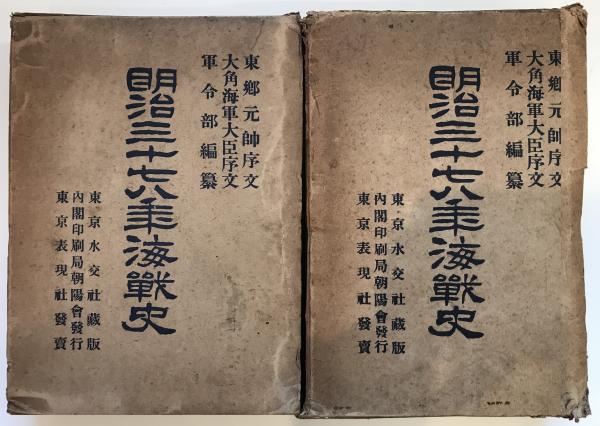 東鄕元帥序文
大角海軍大臣序文
軍令部編纂
明治三十七八年海戰史
東京水交社藏版
內閣印刷局朝陽會發行
東京表現社發賣
東鄕元帥序文
大角海軍大臣序文
軍令部編纂
明治三十七八年海戰史
東京水交社藏版
內閣印刷局朝陽會發行
東京表現社發賣